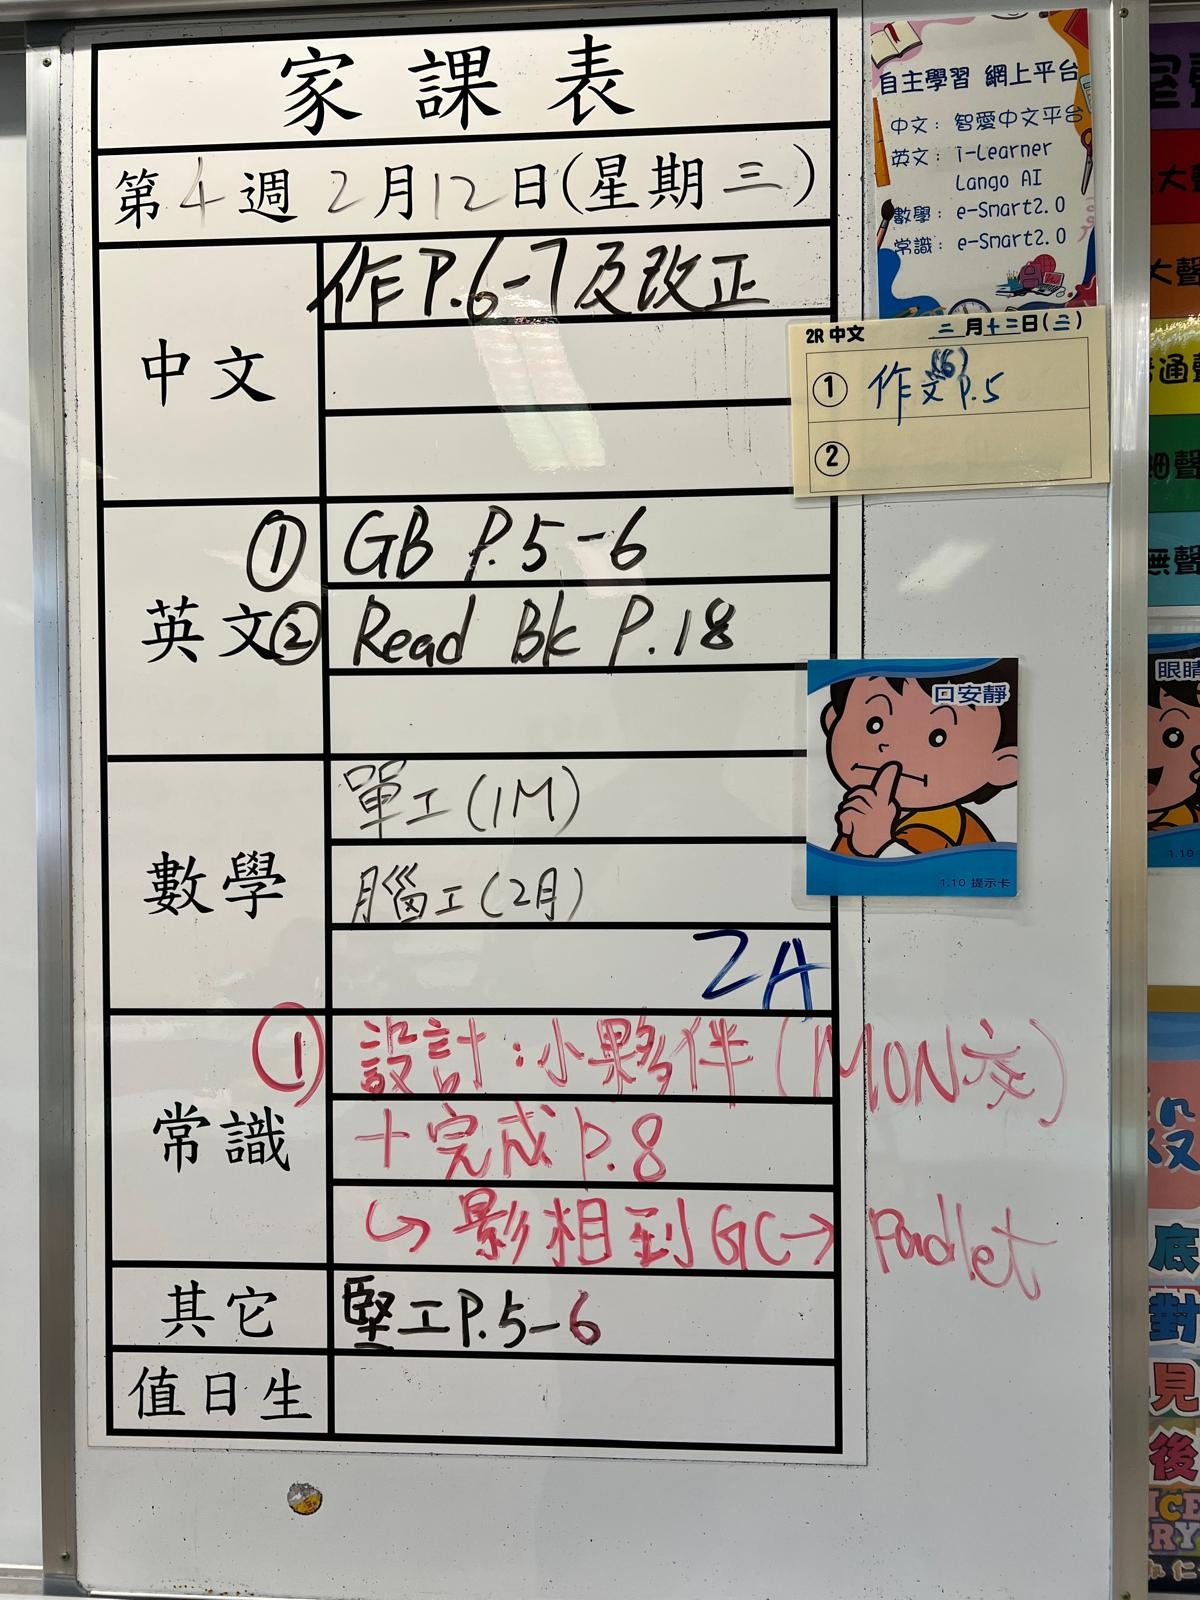 家課表
第4週2月12日(星期三)
中文
作P.6-7及改正
英文
① GB P.5-6
② Read Bk P.18
數學
單工(1M)
腦工(2月)
2A
常識
① 設計:小夥伴(MON交)
+完成P.8
↳影相到GC→Padlet
其它
堅工P.5-6
值日生
自主學習 網上平台
中文: 智愛中文平台
英文: i-Learner
Lango AI
數學: e-Smart2.0
常識: e-Smart2.0
2R 中文 二月十二日(三)
① 作文(6)P.5
②
口安靜
1.10 提示卡
大聲
無聲
眼睛
1.10
底
對
見
後